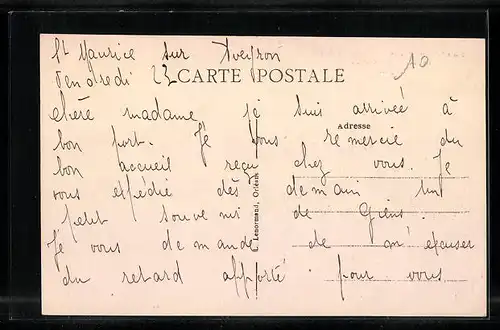 St Maurice sur Aveyron
Vendredi 23
10
CARTE POSTALE
Adresse
L. Lenormand, Orléans
chère madame, je suis arrivée à
bon port. Je vous remercie du
bon accueil reçu chez vous. Je
vous expédie dès demain un
petit souvenir de Gien.
Je vous demande de m'excuser
du retard apporté pour vous